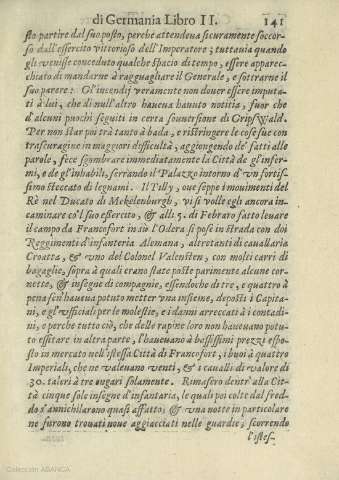 di Germania Libro II. 141
sto partire dal suo posto, perche attendeua sicuramente soccor-
so dall'essercito vittorioso dell'Imperatore; tuttauia quando
gli venisse conceduto qualche spacio di tempo, essere apparec-
chiato di mandarne à ragguagliare il Generale, e sottrarne il
suo parere: Gl'incendij veramente non douer essere imputa-
ti à lui, che di null'altro haueua hauuto notitia, fuor che
d'alcuni puochi seguiti in certa scontrsione di GripsWald.
Per non star poi trà tanto à bada, e ristringere le cose sue con
trascuragine in maggiori difficultà, aggiongendo de' fatti alle
parole, fece sgombrare immediatamente la Città de gl'infer-
mi, e de gl'inhabili, serrando il Palazzo intorno d'vn fortis-
simo steccato di legnami. Il Tilly, oue seppe i mouimenti del
Rè nel Ducato di Mekelenburgh, vi si volle egli ancora in-
caminare co'l suo essercito, & alli 5. di Febraro fatto leuare
il campo da Francofort in sù l'Odera si pose in strada con doi
Reggimenti d'infanteria Alemana, altretanti di cauallaria
Croatta, & vno del Colonel Valensten, con molti carri di
bagaglie, sopra à quali erano state poste parimente alcune cor-
nette, & insegne di compagnie, essendoche di tre, e quattro à
pena se n'haueua potuto metter vna insieme, depositi i Capita-
ni, e gl'vfficiali per le molestie, e i danni arreccati à i contadi-
ni, e perche tutto ciò, che delle rapine loro non haueuano potu-
to essitare in altra parte, l'haueuano à bassissimi prezzi espo-
sto in mercato nell'istessa Città di Francofort, i buoi à quattro
Imperiali, che ne valeuano venti, & i caualli di valore di
30. taleri à tre ungari solamente. Rimasero dentr'alla Cit-
tà cinque sole insegne d'infantaria, le quali poi colte dal fred-
do s'annichilarono quasi affatto; & vna notte in particolare
ne furono trouati noue aggiacciati nelle guardie; scorrendo
l'istes-
Colección ABANCA